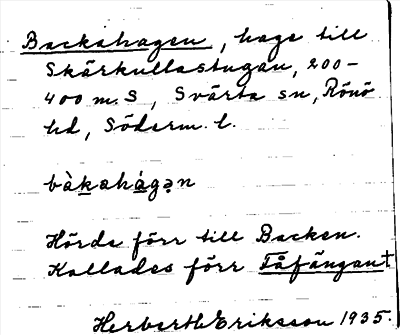 Backahagen, hage till
Skärkullastugan, 200–
400 m. S, Svärta sn, Rönö
hd, Söderm. l.
bàkahágən
Hörde förr till Backen.
Kallades förr Fåfängan†
Herbert Eriksson 1935.